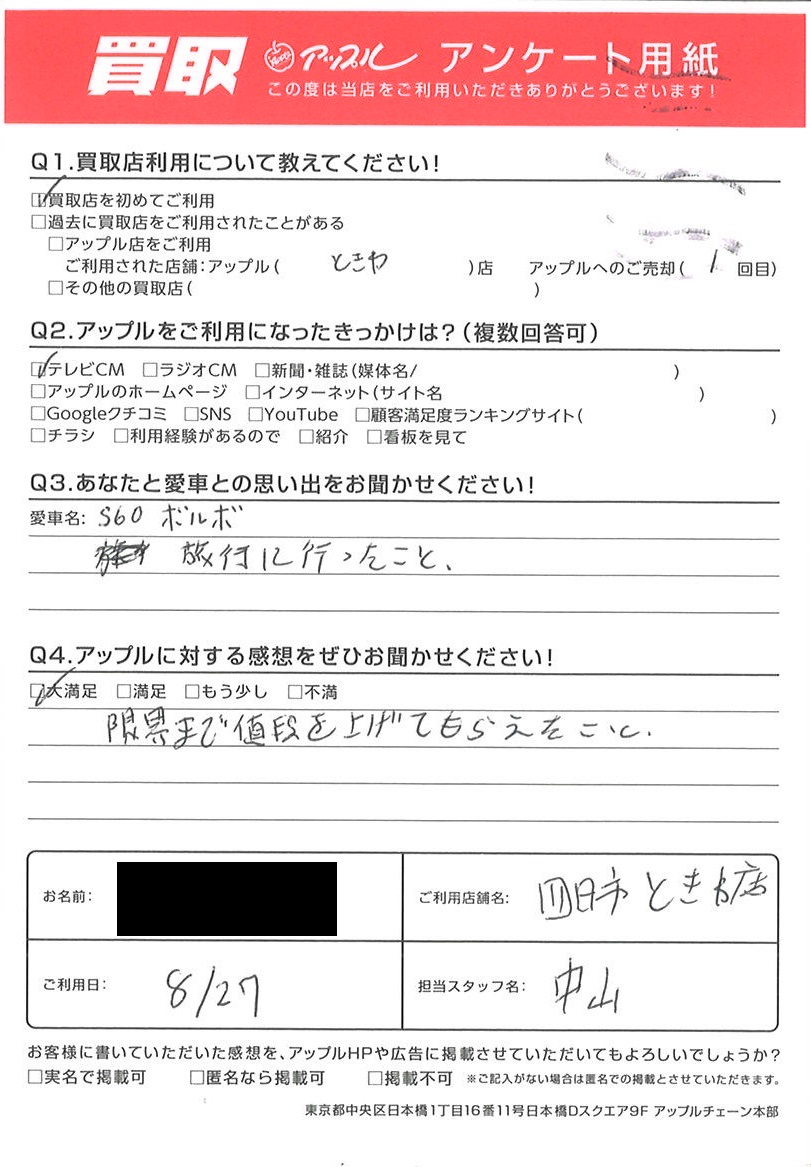 買取 アップル アンケート用紙
この度は当店をご利用いただきありがとうございます!
Q1.買取店利用について教えてください!
☑買取店を初めてご利用
□過去に買取店をご利用されたことがある
□アップル店をご利用
ご利用された店舗:アップル( ときわ )店 アップルへのご売却( 1 回目)
□その他の買取店( )
Q2.アップルをご利用になったきっかけは?(複数回答可)
☑テレビCM □ラジオCM □新聞・雑誌(媒体名/ )
□アップルのホームページ □インターネット(サイト名 )
□Googleクチコミ □SNS □YouTube □顧客満足度ランキングサイト( )
□チラシ □利用経験があるので □紹介 □看板を見て
Q3.あなたと愛車との思い出をお聞かせください!
愛車名: S60 ボルボ
旅行に行ったこと、
Q4.アップルに対する感想をぜひお聞かせください!
☑大満足 □満足 □もう少し □不満
限界まで値段を上げてもらえたこと、
お名前: ご利用店舗名: 四日市ときわ店
ご利用日: 8/27 担当スタッフ名: 中山
お客様に書いていただいた感想を、アップルHPや広告に掲載させていただいてもよろしいでしょうか?
□実名で掲載可 □匿名なら掲載可 □掲載不可 ※ご記入がない場合は匿名での掲載とさせていただきます。
東京都中央区日本橋1丁目16番11号日本橋Dスクエア9F アップルチェーン本部